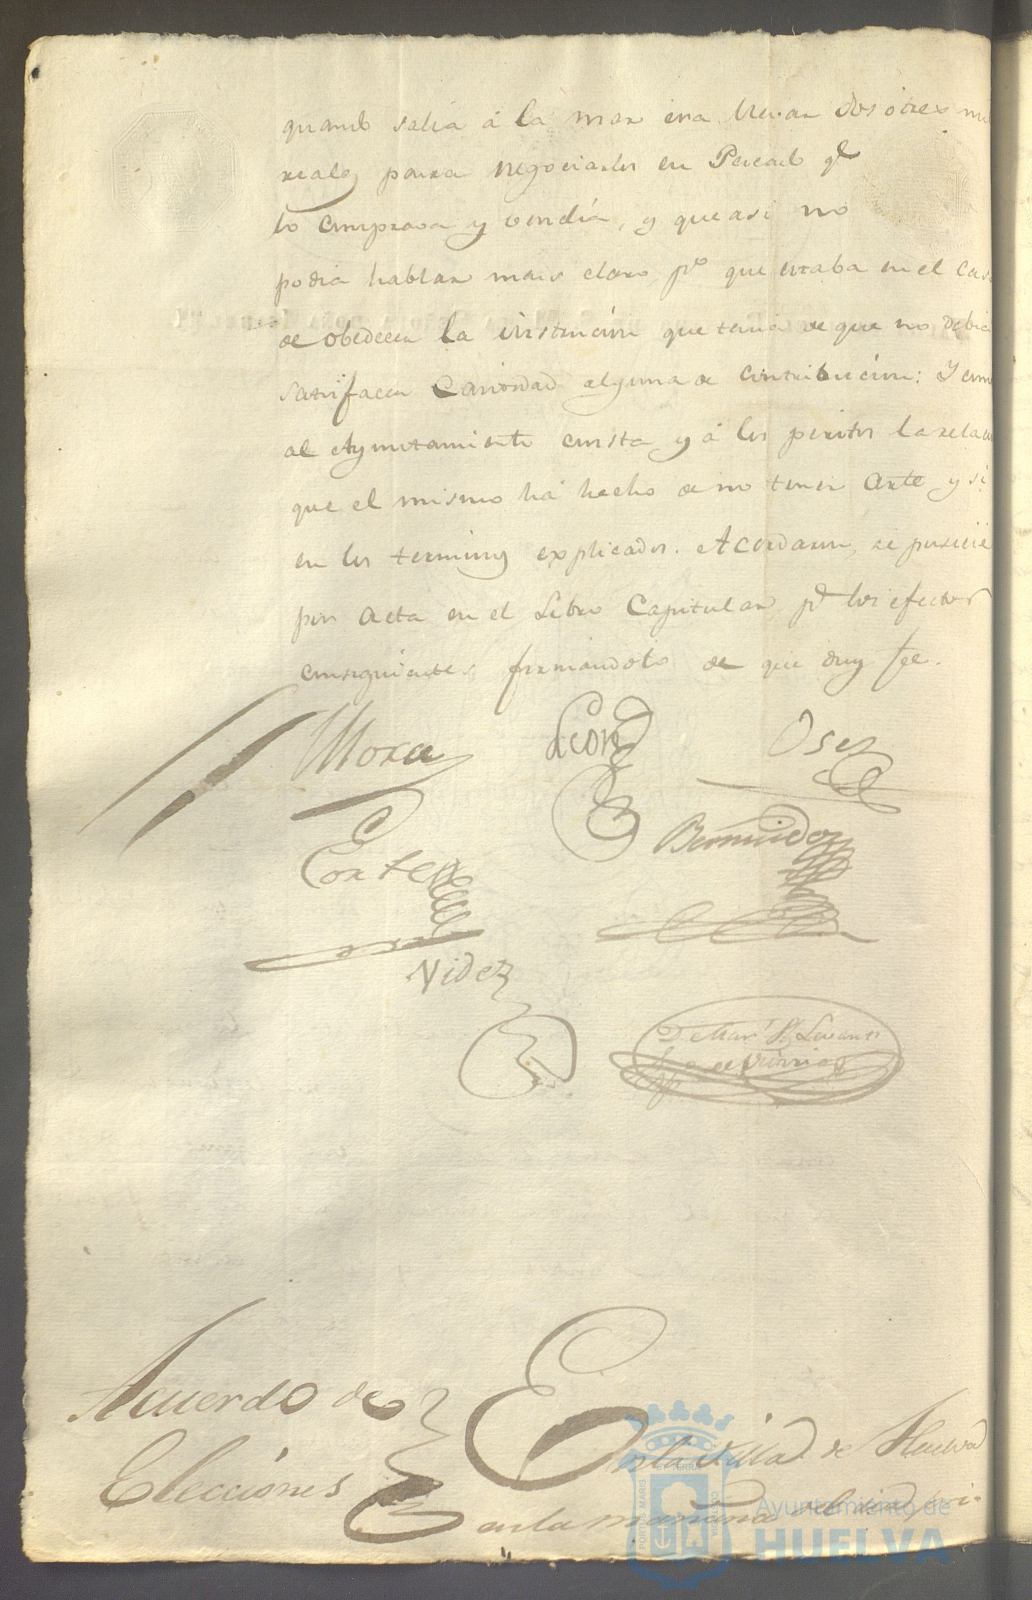 quando salia á la mar era llevar dos ó tres mil
reales para negociarlos en Pescado qe
lo comprava y vendia, y que asi no
podia hablar mais claro, po que estaba en el caso
de obedecer la instrucion que tenia de que no debia
satisfacer cantidad alguna de contribucion: Y como
al Ayuntamiento consta y á los peritos la relacion
que el mismo há hecho de no tener arte y si
en los terminos explicados. Acordaron, se pusiese
por acta en el Libro Capitular pa los efectos
consiguientes firmandolo de que doy fee.
Mora Leon Osez
Corte Bermudez
Videz
Acuerdo de
Elecciones
En la villa de Huelva
en la mañana del dia
Ayuntamiento de
HUELVA